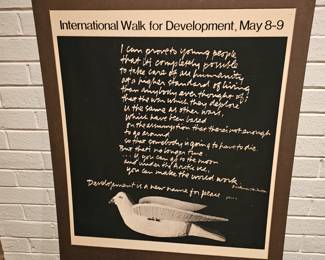 International Walk for Development, May 8-9
I can prove to young people
that it's completely possible
to take care of all humanity
at a higher standard of living
than anybody ever thought of;
that the war which they deplore
is the same as other wars,
which have been based
on the assumption that there is not enough
to go around,
so that somebody is going to have to die.
But that no longer true
... if you can go to the moon
and under the Arctic ice,
you can make the world work.
Development is a new name for peace